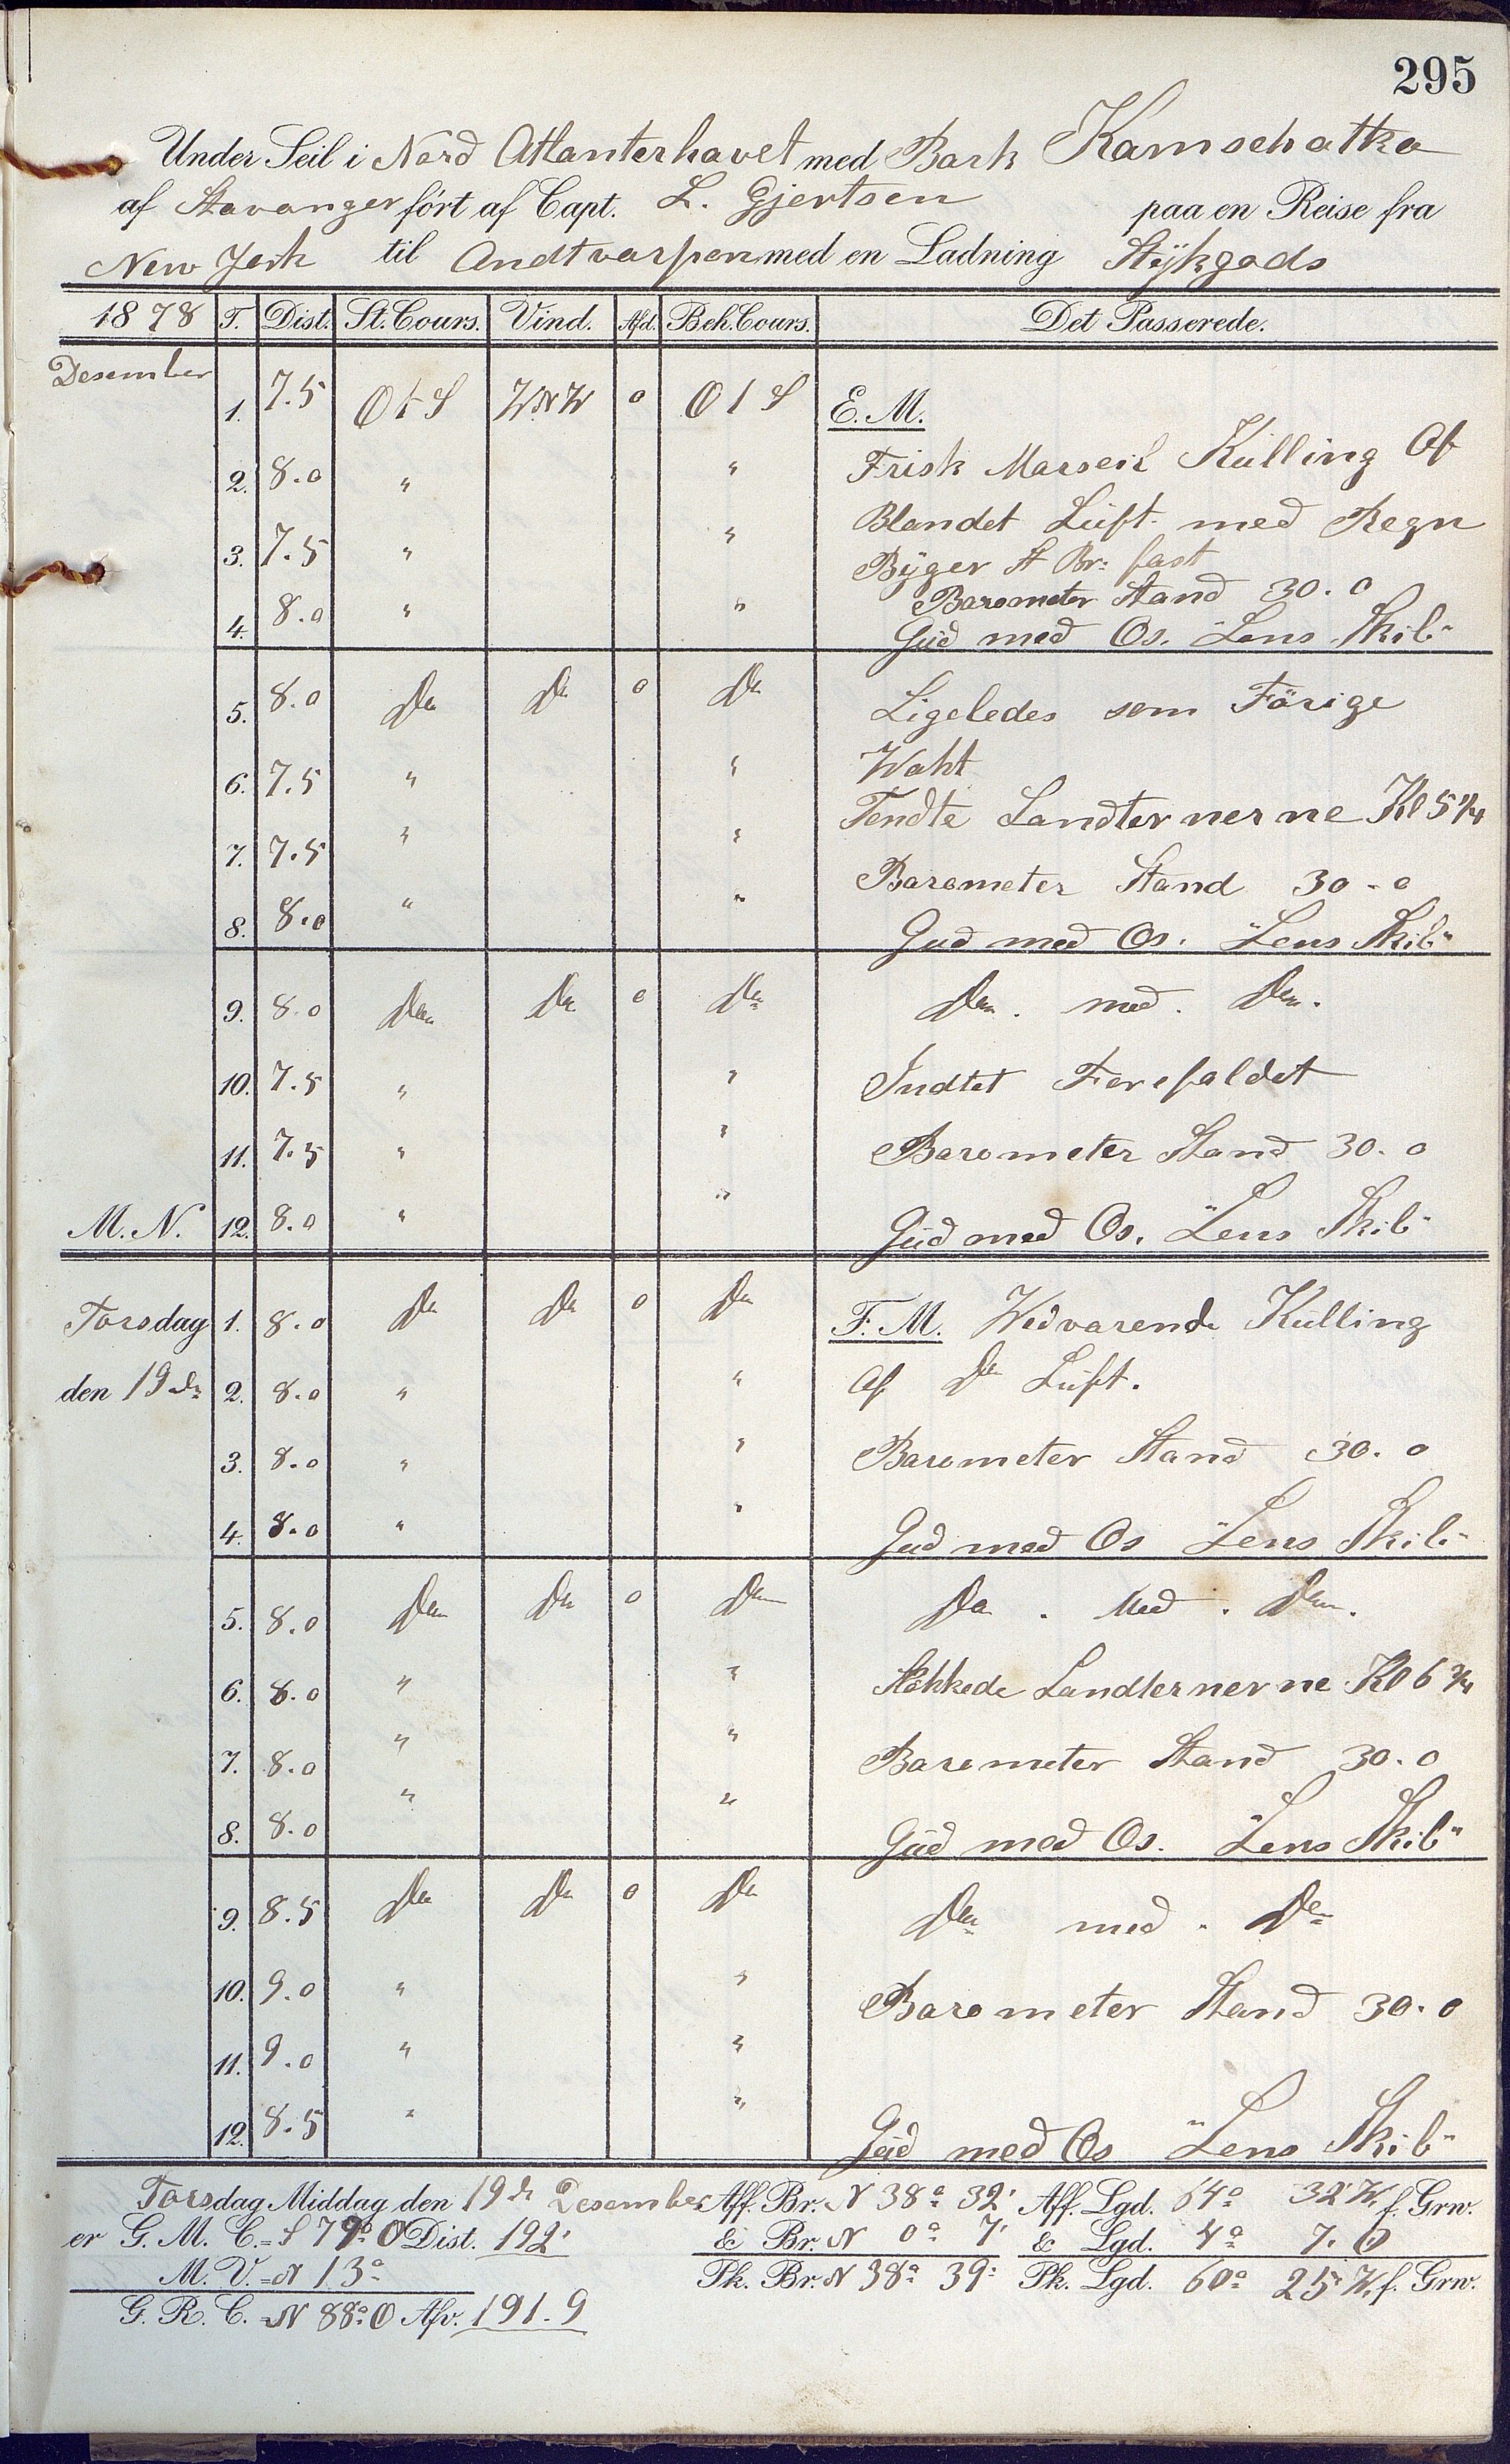 295
Under Seil i Nord Atlanterhavet med Bark Kamschatka
af Stavanger ført af Capt. L. Gjertsen paa en Reise fra
New York til Andtvarpen med en Ladning Stÿkgods
1878 T. Dist. St. Cours. Vind. Afd. Beh. Cours. Det Passerede.
Desember
1. 7.5 O t S WNW 0 O t S E. M.
2. 8.0 " " Frisk Marseil Kulling Af
3. 7.5 " " Blandet Luft med Regn
Byger St Br: fast
Barometer Stand 30.0
4. 8.0 " " Gud med Os. "Lens Skib"
5. 8.0 Do Do 0 Do Ligeledes som Förige
6. 7.5 " " Waht
7. 7.5 " " Tendte Landternerne Kl 5 1/4
Barometer Stand 30.0
8. 8.0 " " Gud med Os. "Lens Skib"
9. 8.0 Do Do 0 Do Do. med. Do.
10. 7.5 " " Indtet Forefaldet
11. 7.5 " " Barometer Stand 30.0
M. N. 12. 8.0 " " Gud med Os. "Lens Skib"
Torsdag 1. 8.0 Do Do 0 Do F. M. Wedvarende Kulling
den 19de 2. 8.0 " " Af Do Luft.
3. 8.0 " " Barometer Stand 30.0
4. 8.0 " " Gud med Os "Lens Skib"
5. 8.0 Do Do 0 Do Do. Med. Do.
6. 8.0 " " Slökkede Landternerne Kl 6 3/4
7. 8.0 " " Barometer Stand 30.0
8. 8.0 " " Gud med Os. "Lens Skib"
9. 8.5 Do Do 0 Do Do med. Do
10. 9.0 " " Barometer Stand 30.0
11. 9.0 " "
12. 8.5 " " Gud med Os "Lens Skib"
Torsdag Middag den 19de Desember Aff. Br. N 38° 32' Aff. Lgd. 64° 32' W. f. Grw.
er G. M. C. = S 79° O Dist. 192' & Br. N 0° 7' & Lgd. 4° 7. O
M. V. = N 13° Pk. Br. N 38° 39' Pk. Lgd. 60° 25' W. f. Grw.
G. R. C. = N 88° O Afv. 191.9